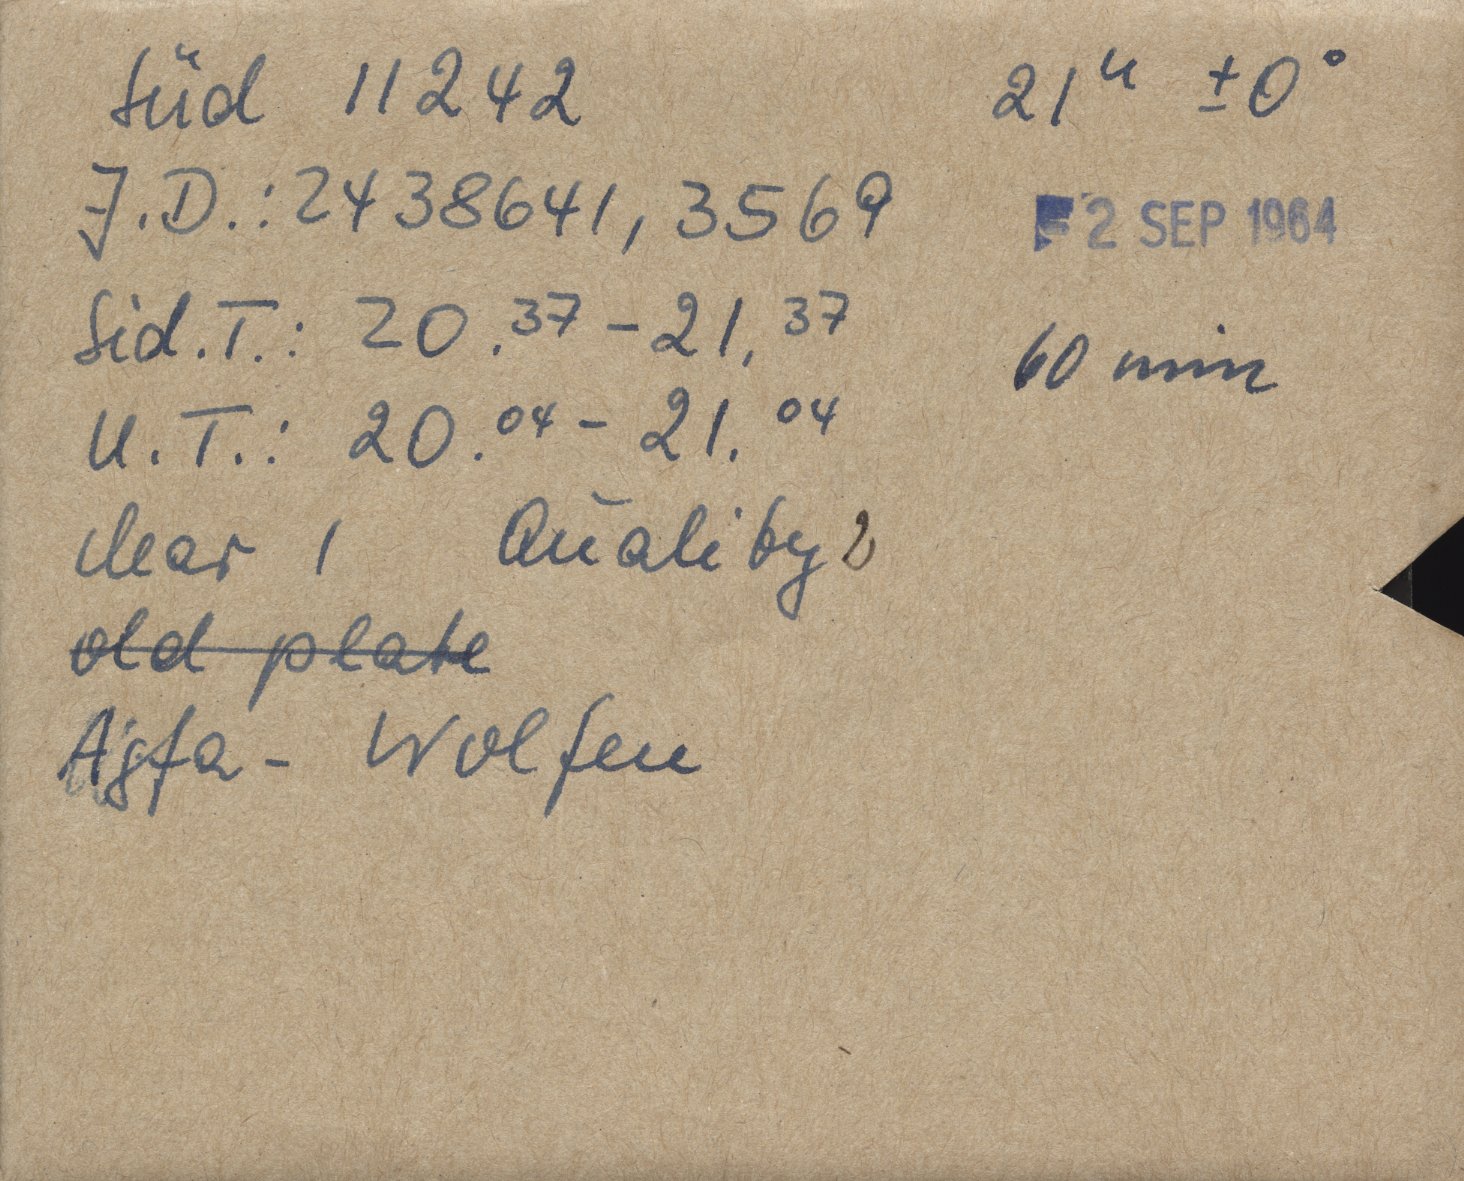 Süd 11242 21ʰ ±0°
J.D.: 2438641,3569 2 SEP 1964
Sid.T.: 20.³⁷ - 21.³⁷ 60 min
U.T.: 20.⁰⁴ - 21.⁰⁴
clear 1 Quality 2
old plate
Agfa - Wolfen